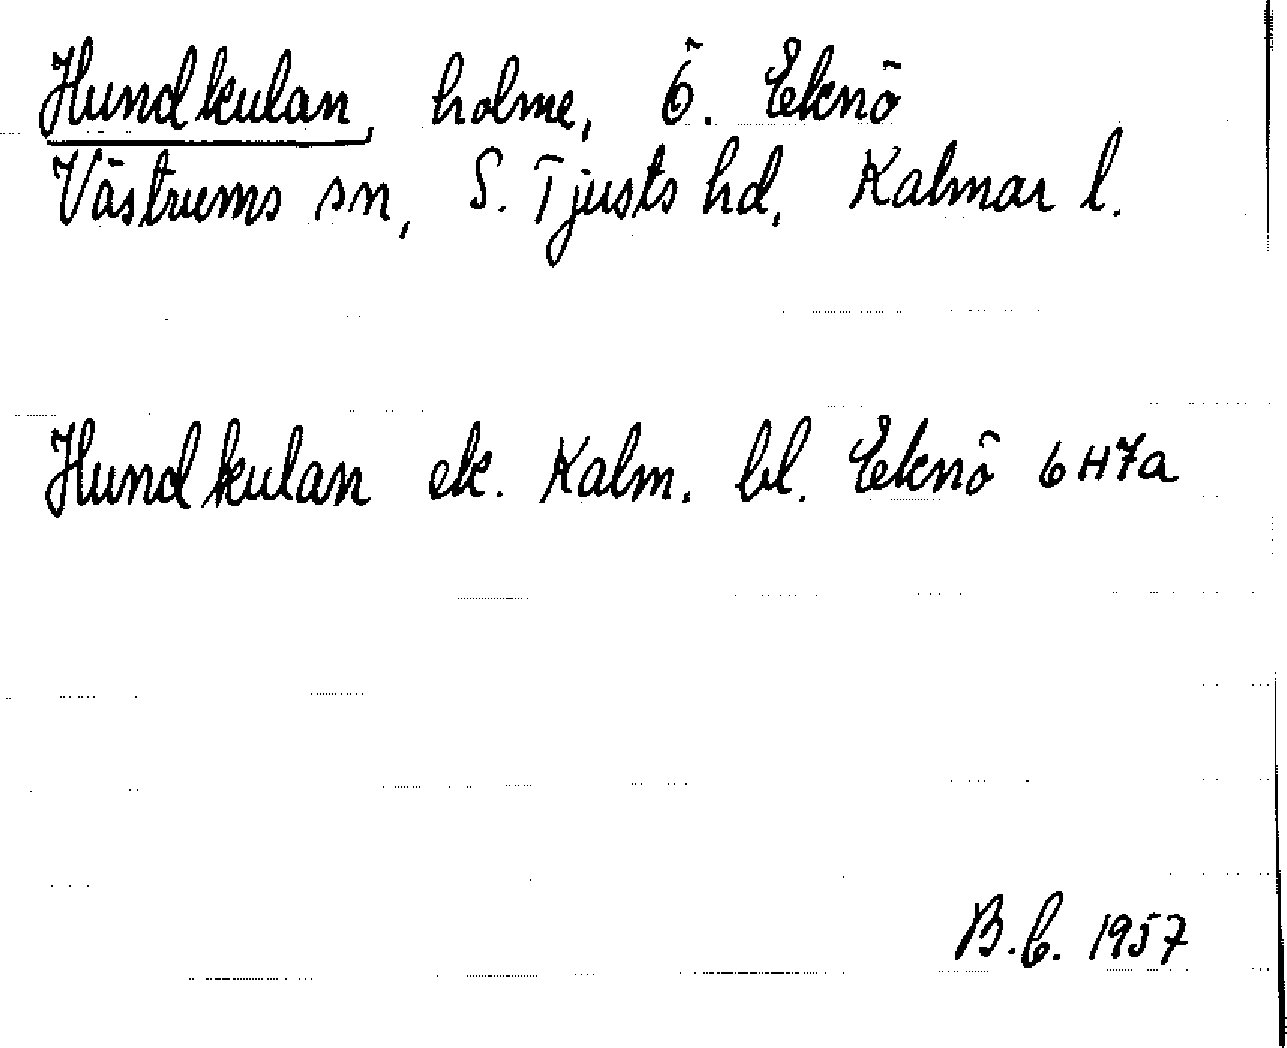 Hundkulan, holme, Ö. Eknö
Västrums sn, S. Tjusts hd, Kalmar l.
Hundkulan ek. Kalm. bl. Eknö 6H7a
B.C. 1957